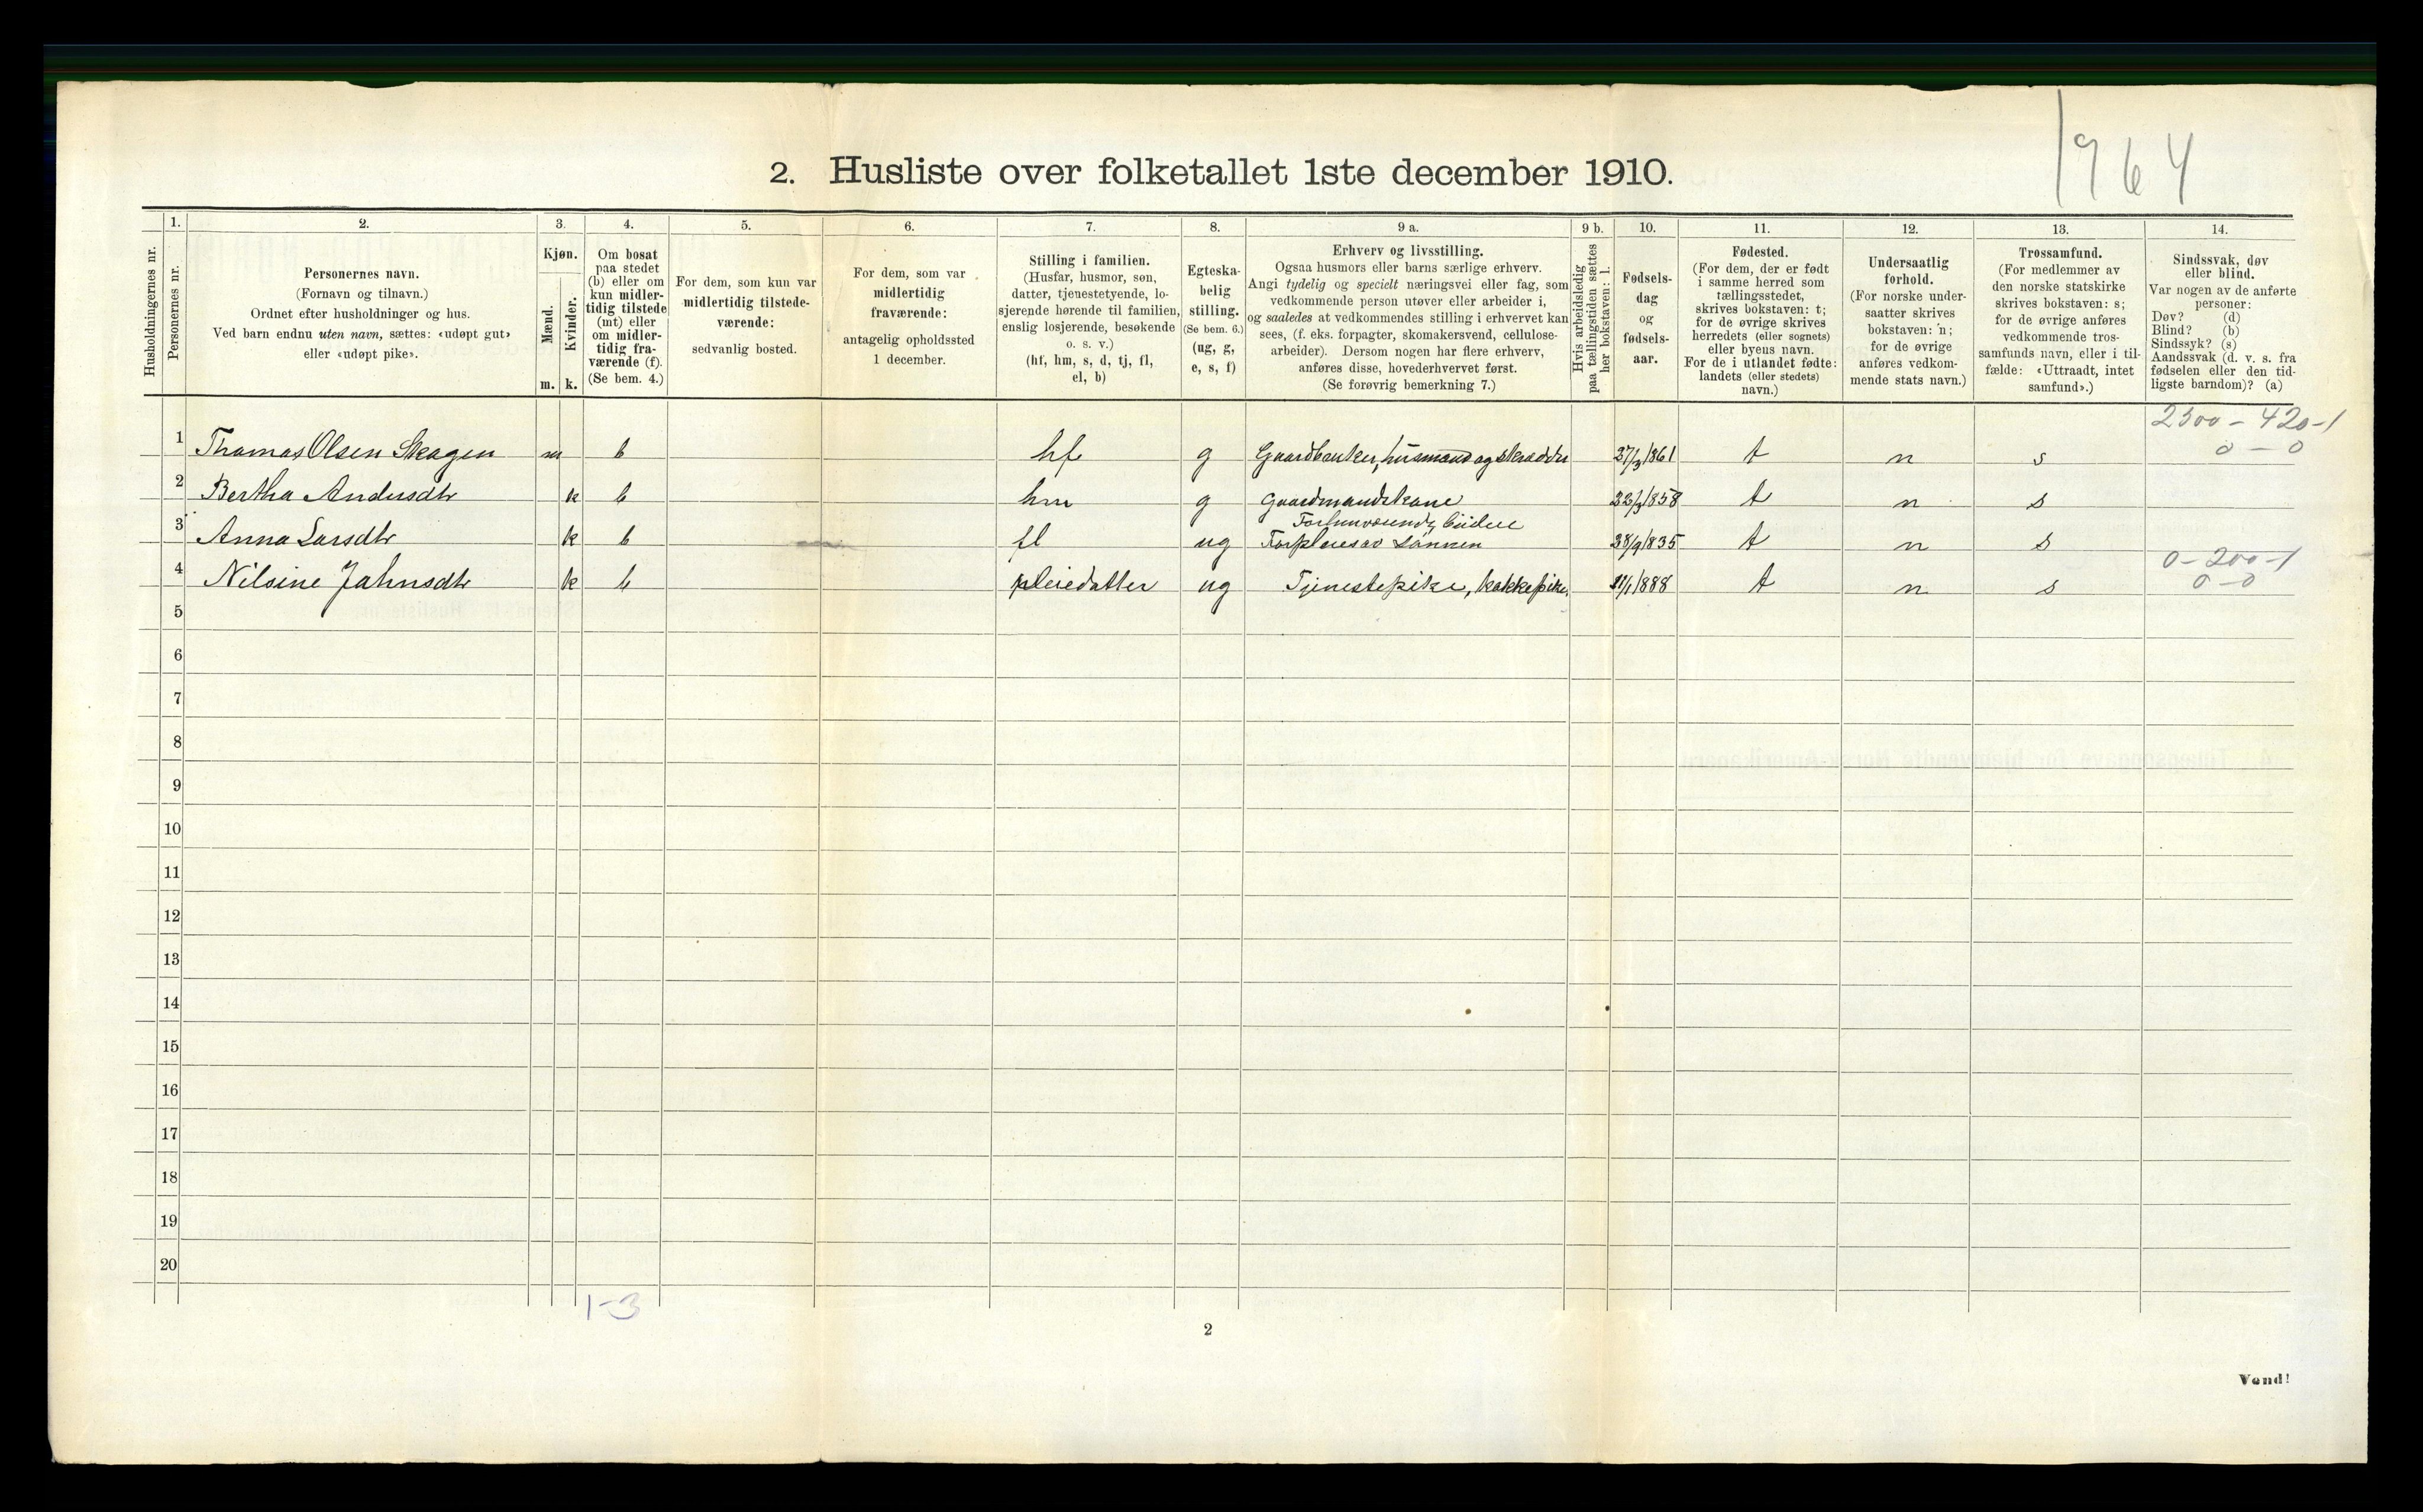 1964
2. Husliste over folketallet 1ste december 1910.
Husholdningernes nr.
1.
Personernes nr.
2.
Personernes navn.
(Fornavn og tilnavn.)
Ordnet efter husholdninger og hus.
Ved barn endnu uten navn, sættes: «udøpt gut»
eller «udøpt pike».
3.
Kjøn.
Mænd.
m.
Kvinder.
k.
4.
Om bosat
paa stedet
(b) eller om
kun midler-
tidig tilstede
(mt) eller
om midler-
tidig fra-
værende (f).
(Se bem. 4.)
5.
For dem, som kun var
midlertidig tilstede-
værende:
sedvanlig bosted.
6.
For dem, som var
midlertidig
fraværende:
antagelig opholdssted
1 december.
7.
Stilling i familien.
(Husfar, husmor, søn,
datter, tjenestetyende, lo-
sjerende hørende til familien,
enslig losjerende, besøkende
o. s. v.)
(hf, hm, s, d, tj, fl,
el, b)
8.
Egteska-
belig
stilling.
(Se bem. 6.)
(ug, g,
e, s, f)
9 a.
Erhverv og livsstilling.
Ogsaa husmors eller barns særlige erhverv.
Angi tydelig og specielt næringsvei eller fag, som
vedkommende person utøver eller arbeider i,
og saaledes at vedkommendes stilling i erhvervet kan
sees, (f. eks. forpagter, skomakersvend, cellulose-
arbeider). Dersom nogen har flere erhverv,
anføres disse, hovederhvervet først.
(Se forøvrig bemerkning 7.)
9 b.
Hvis arbeidsledig
paa tællingstiden sættes
her bokstaven: l.
10.
Fødsels-
dag
og
fødsels-
aar.
11.
Fødested.
(For dem, der er født
i samme herred som
tællingsstedet,
skrives bokstaven: t;
for de øvrige skrives
herredets (eller sognets)
eller byens navn.
For de i utlandet fødte:
landets (eller stedets)
navn.)
12.
Undersaatlig
forhold.
(For norske under-
saatter skrives
bokstaven: n;
for de øvrige
anføres vedkom-
mende stats navn.)
13.
Trossamfund.
(For medlemmer av
den norske statskirke
skrives bokstaven: s;
for de øvrige anføres
vedkommende tros-
samfunds navn, eller i til-
fælde: «Uttraadt, intet
samfund».)
14.
Sindssvak, døv
eller blind.
Var nogen av de anførte
personer:
Døv? (d)
Blind? (b)
Sindssyk? (s)
Aandssvak (d. v. s. fra
fødselen eller den tid-
ligste barndom)? (a)
2300 - 420-1
1 Thomas Olsen Skagen m b hf g Gaardbruker, husmand og skrædder 27/3 1861 t n s 0 - 0
2 Bertha Andersdtr k b hm g Gaardmandskone 22/3 1858 t n s
3 Anna Larsdtr k b fl ug Forpleies av 28/9 1835 t n s
0-200-1
4 Nilsine Jahnsdtr k b pleiedatter ug Tjenestepike, kokkepike. 11/1 1888 t n s 0-0
5
6
7
8
9
10
11
12
13
14
15
16
17
18
19
20
1-3
2
Vend!